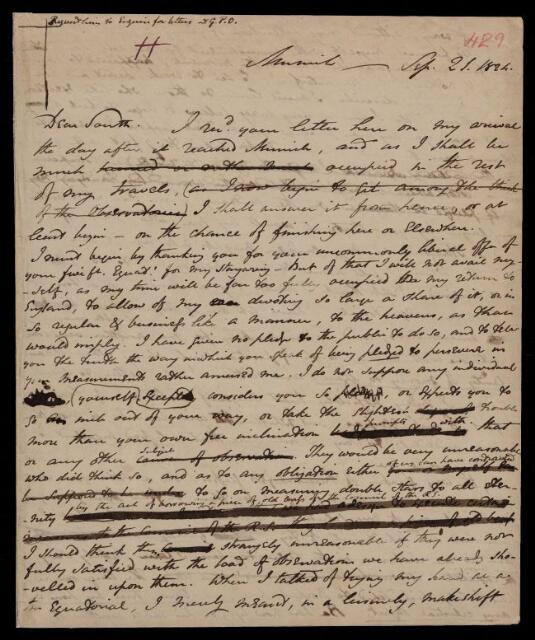 Request him to Enquire for letters at G.P.O.
429
Munich Sep. 21. 1824.
Dear South. I recd. your letter here on my arrival
the day after it reached Munich, and as I shall be
much occupied in the rest
of my travels, (as I now begin to get among the thick
of the Observatories) I shall answer it from hence, or at
least begin - on the chance of finishing here or Elsewhere.
I must begin by thanking you for your uncommonly liberal offr. of
your five ft. Equatl. for my Stargazing - But of that I will not avail my-
-self, as my time will be far too fully occupied after my return to
England, to allow of my devoting so large a share of it, or in
so regular & business like a manner, to the heavens, as that
would imply. I have given no pledge to the public to do so, and to tell
you the truth the way in which you speak of being pledged to persevere in
yr. measurements rather amused me. I do not suppose any individual
(yourself excepted) considers you so, or expects you to
go an inch out of your way, or take the slightest trouble
more than your own free inclination prompts with that
or any other subject. They would be very unreasonable
who did think so, and as to any obligation either of us can have contracted
to go on measuring double stars to all Eter-
-nity by the act of
I should think they strangely unreasonable if they were not
fully satisfied with the load of observations we have already sho-
-velled in upon them. When I talked of trying my hand at a
Equatorial, I merely meant, in a leisurely, makeshift